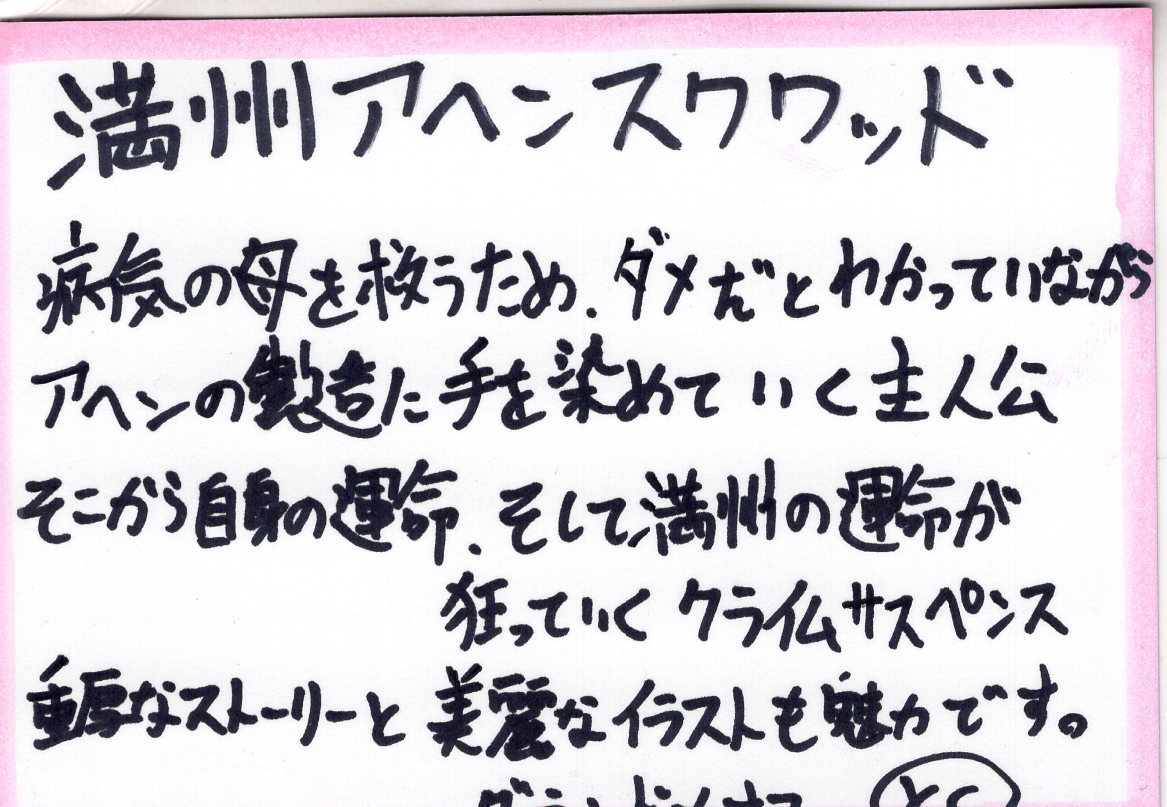 満州アヘンスクワッド
病気の母を救うため、ダメだとわかっていながら
アヘンの製造に手を染めていく主人公
そこから自身の運命、そして満州の運命が
狂っていくクライムサスペンス
重厚なストーリーと美麗なイラストも魅力です。